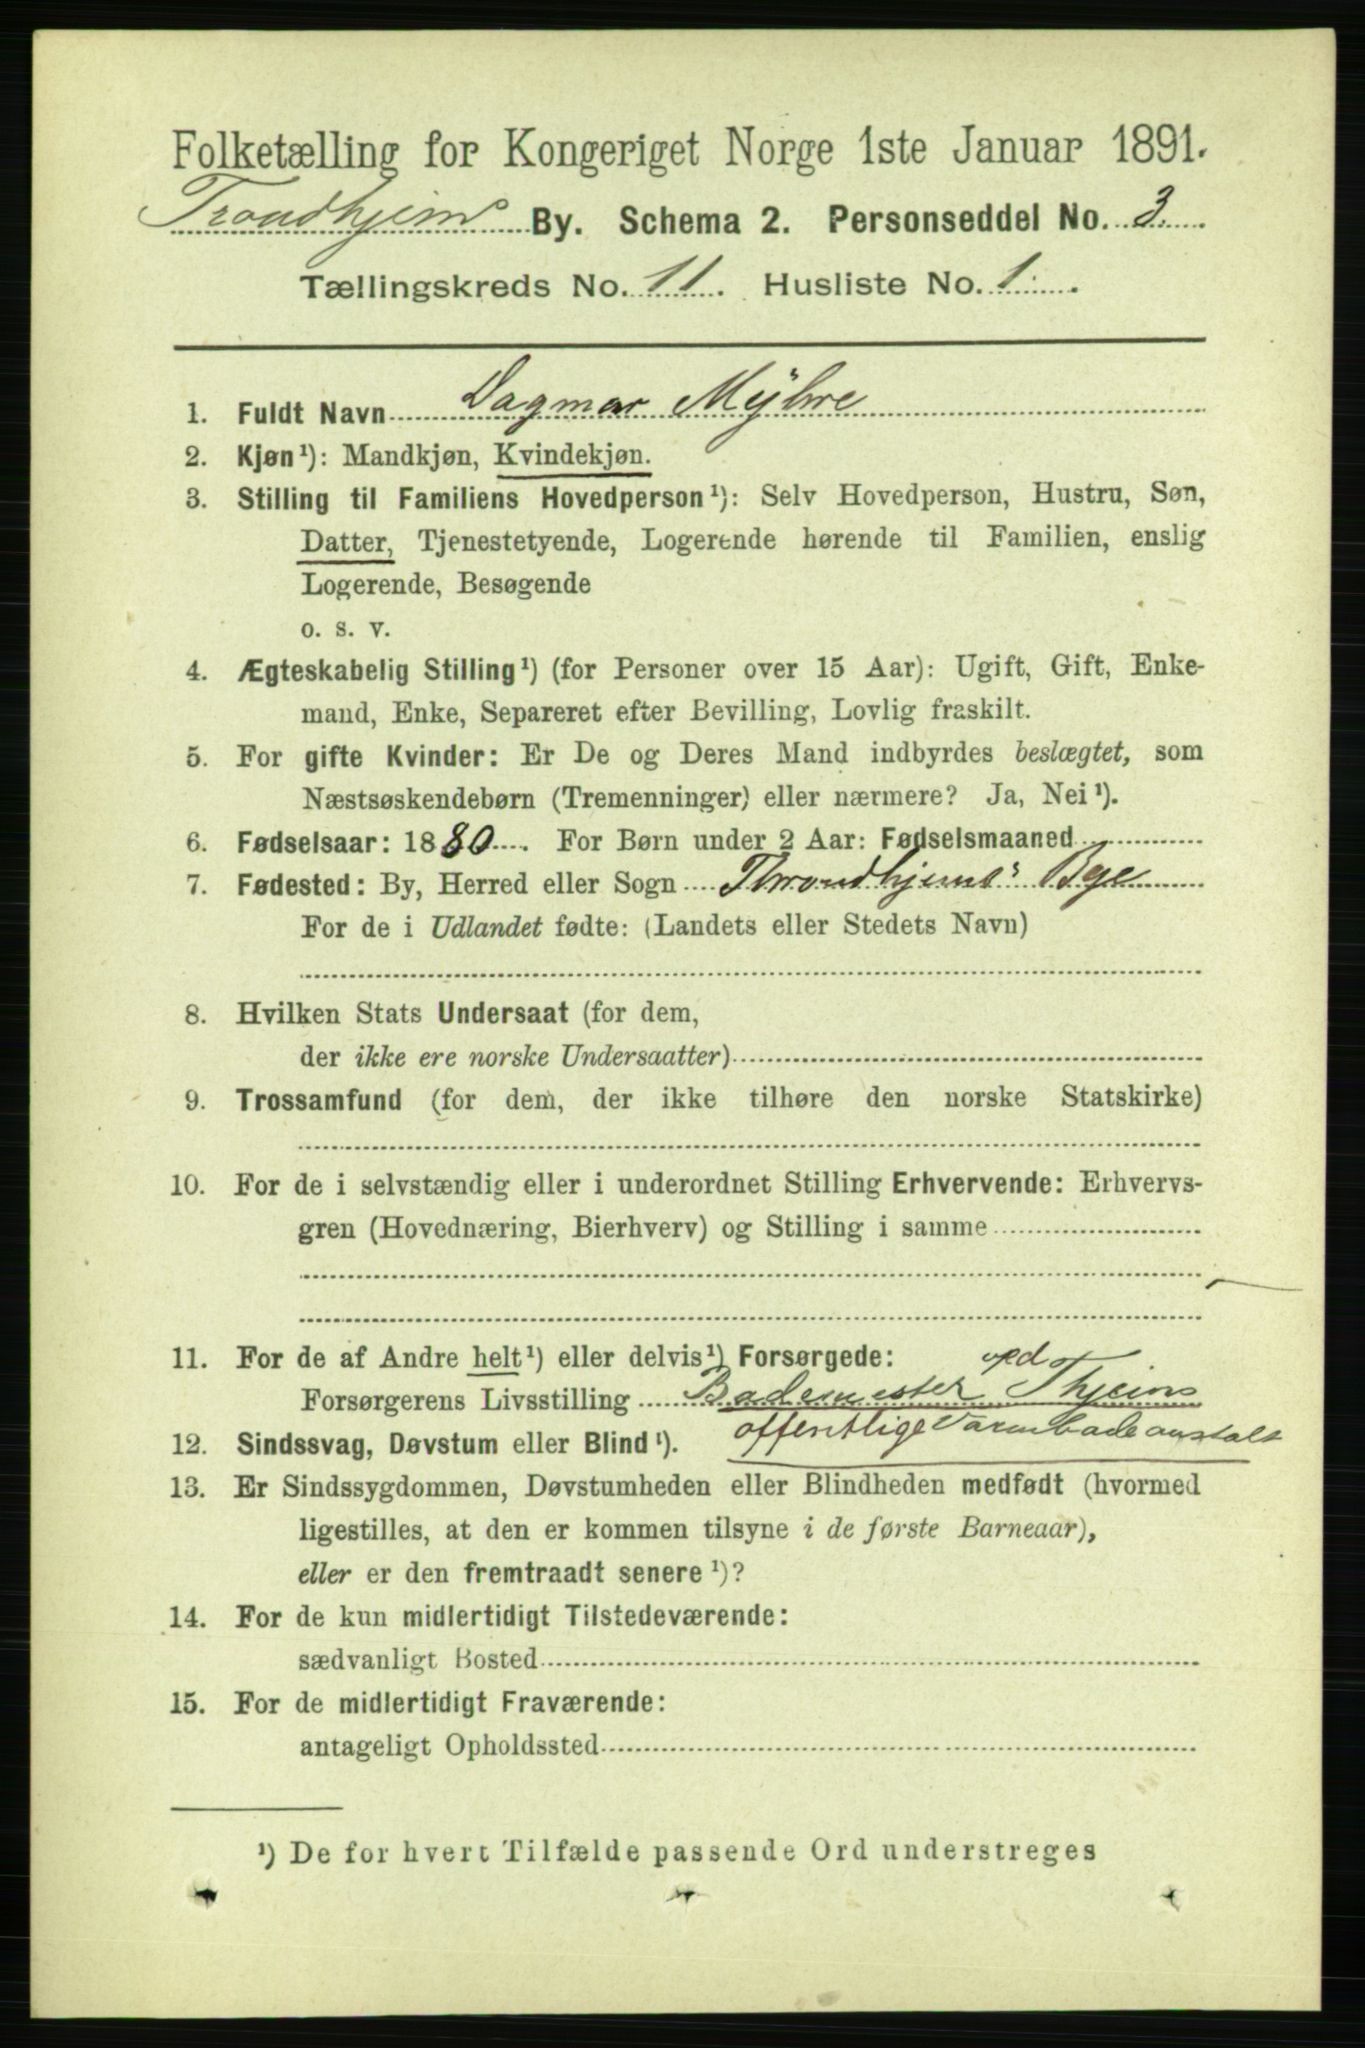 Folketælling for Kongeriget Norge 1ste Januar 1891.
Trondhjem By. Schema 2. Personseddel No. 3
Tællingskreds No. 11. Husliste No. 1.
1. Fuldt Navn Dagmar Myhre
2. Kjøn¹): Mandkjøn, Kvindekjøn.
3. Stilling til Familiens Hovedperson¹): Selv Hovedperson, Hustru, Søn,
Datter, Tjenestetyende, Logerende hørende til Familien, enslig
Logerende, Besøgende
o. s. v.
4. Ægteskabelig Stilling¹) (for Personer over 15 Aar): Ugift, Gift, Enke-
mand, Enke, Separeret efter Bevilling, Lovlig fraskilt.
5. For gifte Kvinder: Er De og Deres Mand indbyrdes beslægtet, som
Næstsøskendebørn (Tremenninger) eller nærmere? Ja, Nei¹).
6. Fødselsaar: 1880. For Børn under 2 Aar: Fødselsmaaned
7. Fødested: By, Herred eller Sogn Throndhjems By
For de i Udlandet fødte: (Landets eller Stedets Navn)
8. Hvilken Stats Undersaat (for dem,
der ikke ere norske Undersaatter)
9. Trossamfund (for dem, der ikke tilhøre den norske Statskirke)
10. For de i selvstændig eller i underordnet Stilling Erhvervende: Erhvervs-
gren (Hovednæring, Bierhverv) og Stilling i samme
11. For de af Andre helt¹) eller delvis¹) Forsørgede:
Forsørgerens Livsstilling Bademester ved Thjems
offentlige Varmbadeanstalt
12. Sindssvag, Døvstum eller Blind¹).
13. Er Sindssygdommen, Døvstumheden eller Blindheden medfødt (hvormed
ligestilles, at den er kommen tilsyne i de første Barneaar),
eller er den fremtraadt senere¹)?
14. For de kun midlertidigt Tilstedeværende:
sædvanligt Bosted
15. For de midlertidigt Fraværende:
antageligt Opholdssted
¹) De for hvert Tilfælde passende Ord understreges